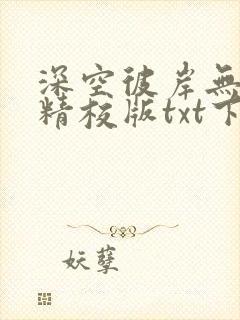 深空彼岸無
精校版txt下
妖孽